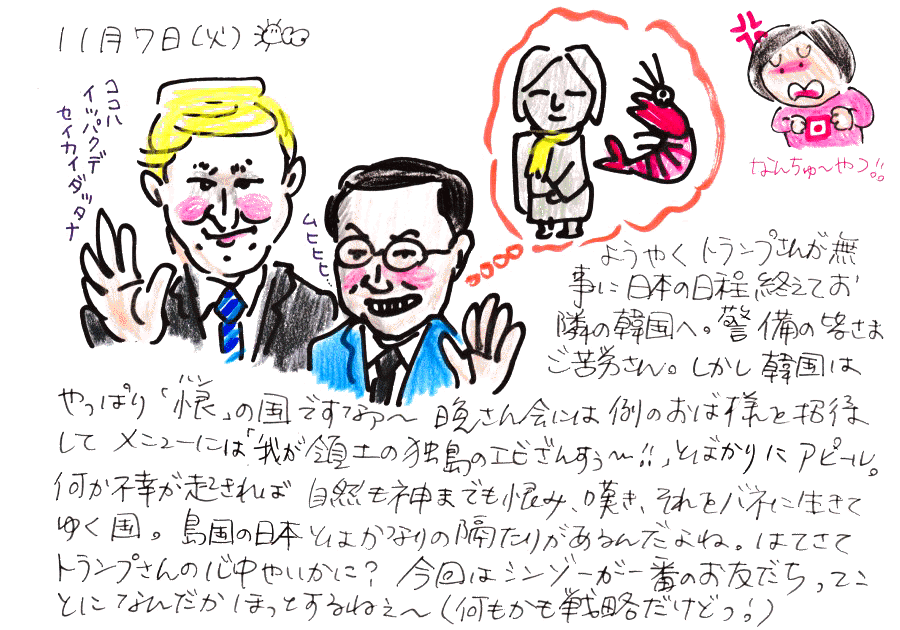 11月7日(火)
ココハ
イッパクデ
セイカイダッタナ
ムヒヒヒ…
なんちゅ〜やつ!!
ようやくトランプさんが無
事に日本の日程終えてお
隣の韓国へ。警備の皆さま
ご苦労さん。しかし韓国は
やっぱり「恨」の国ですなァ〜 晩さん会には例のおば様を招待
して メニューには「我が領土の独島のエビざんすぅ〜!!」とばかりにアピール。
何か不幸が起されば 自然も神までも恨み、嘆き、それをバネに生きて
ゆく国。島国の日本とはかなりの隔たりがあるんだよね。はてさて
トランプさんの心中やいかに? 今回はシンゾーが一番のお友だちってこ
とになんだかほっとするねぇ〜(何もかも戦略だけどっ!)